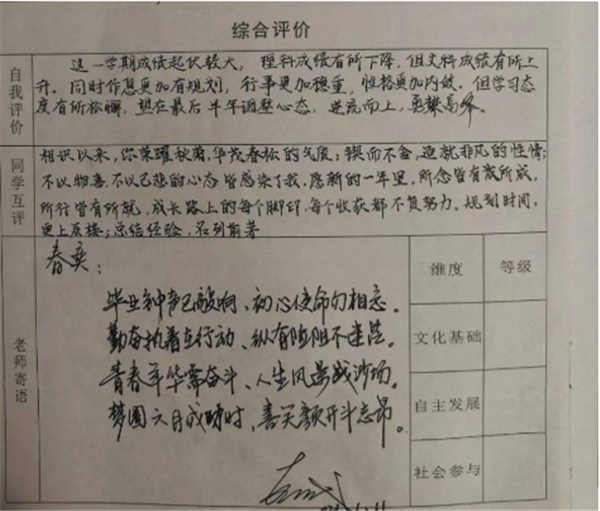 综合评价
自我评价
这一学期成绩起伏较大，理科成绩有所下降，但文科成绩有所上
升。同时作息更加有规划，行事更加稳重，性格更加内敛。但学习态
度有所松懈，望在最后半年调整心态，逆流而上，勇攀高峰
同学互评
相识以来，你荣曜秋菊，华茂春松的气度；锲而不舍，造就非凡的性情；
不以物喜，不以己悲的心态皆感染了我，愿新的一年里，所念皆有所成，
所行皆有所就，成长路上的每个脚印，每个收获都不负努力。规划时间，
更上层楼；总结经验，名列前茅
老师寄语
春奕：
毕业钟声已敲响、初心使命勿相忘。
勤奋执着在行动、纵有险阻不迷茫。
青春年华需奋斗、人生风景战沙场。
梦圆六月成功时，喜笑颜开斗志昂。
维度 等级
文化基础
自主发展
社会参与